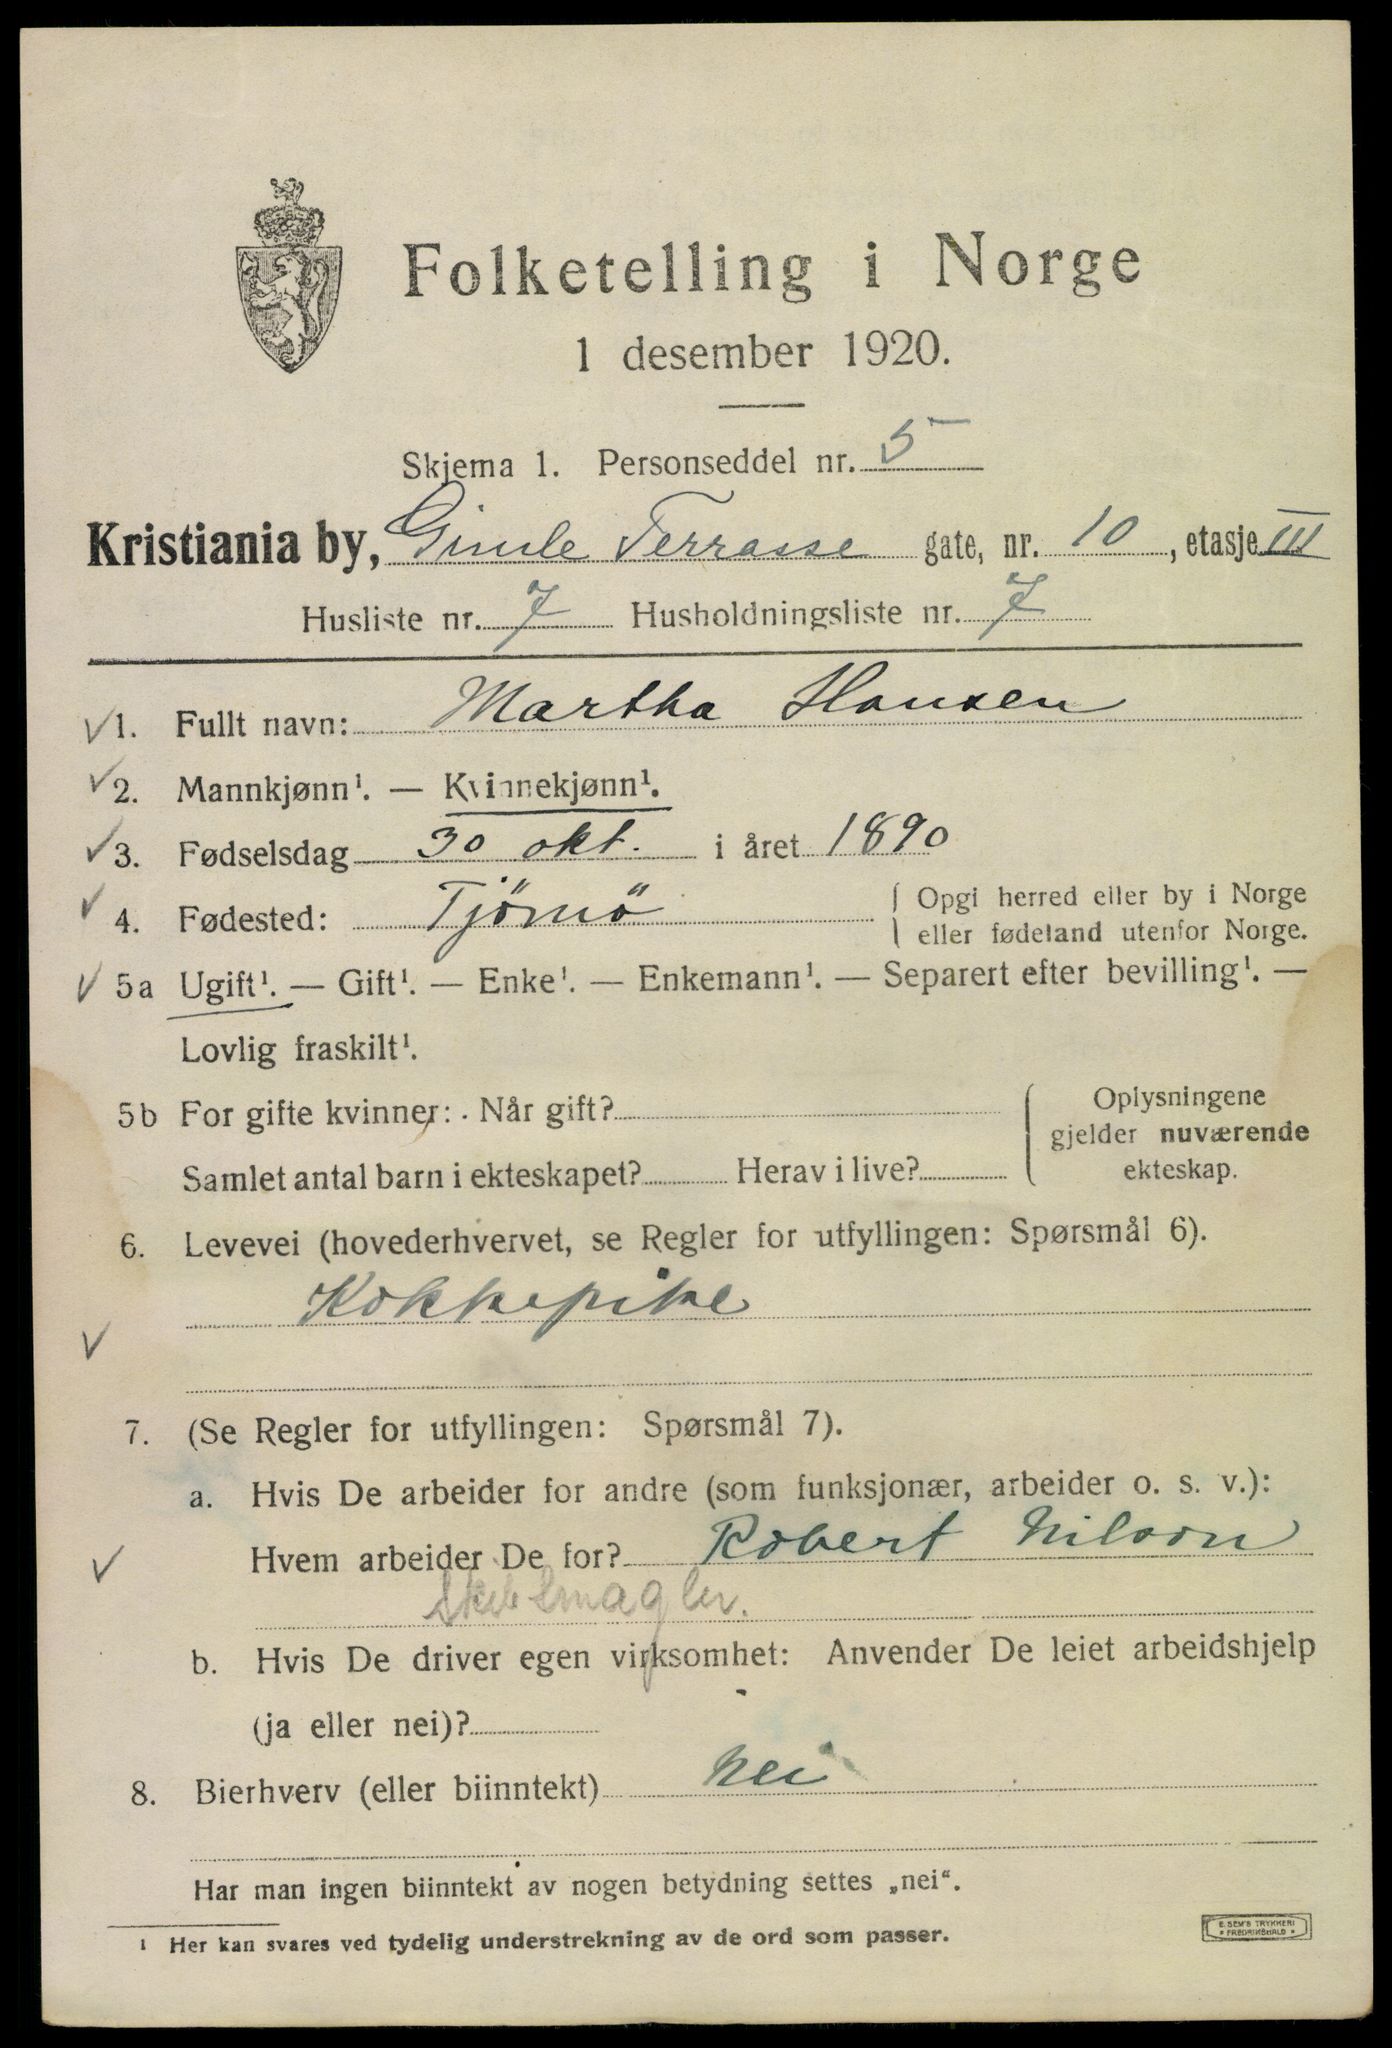 Folketelling i Norge
1 desember 1920.
Skjema 1. Personseddel nr. 5
Kristiania by, Gimle Terrasse gate, nr. 10, etasje III
Husliste nr. 7 Husholdningsliste nr. 7
1. Fullt navn: Martha Hansen
2. Mannkjønn¹. — Kvinnekjønn¹.
3. Fødselsdag 30 okt. i året 1890
4. Fødested: Tjömö { Opgi herred eller by i Norge
eller fødeland utenfor Norge.
5a Ugift¹. — Gift¹. — Enke¹. — Enkemann¹. — Separert efter bevilling¹. —
Lovlig fraskilt¹.
5b For gifte kvinner: Når gift? Oplysningene
gjelder nuværende
Samlet antal barn i ekteskapet? Herav i live? ekteskap.
6. Levevei (hovederhvervet, se Regler for utfyllingen: Spørsmål 6).
Kokkepike
7. (Se Regler for utfyllingen: Spørsmål 7).
a. Hvis De arbeider for andre (som funksjonær, arbeider o. s. v.):
Hvem arbeider De for? Robert Nilson
Skibsmagler.
b. Hvis De driver egen virksomhet: Anvender De leiet arbeidshjelp
(ja eller nei)?
8. Bierhverv (eller biinntekt) Nei
Har man ingen biinntekt av nogen betydning settes „nei“.
¹ Her kan svares ved tydelig understrekning av de ord som passer.
E. SEM'S TRYKKERI
* FREDRIKSHALD *